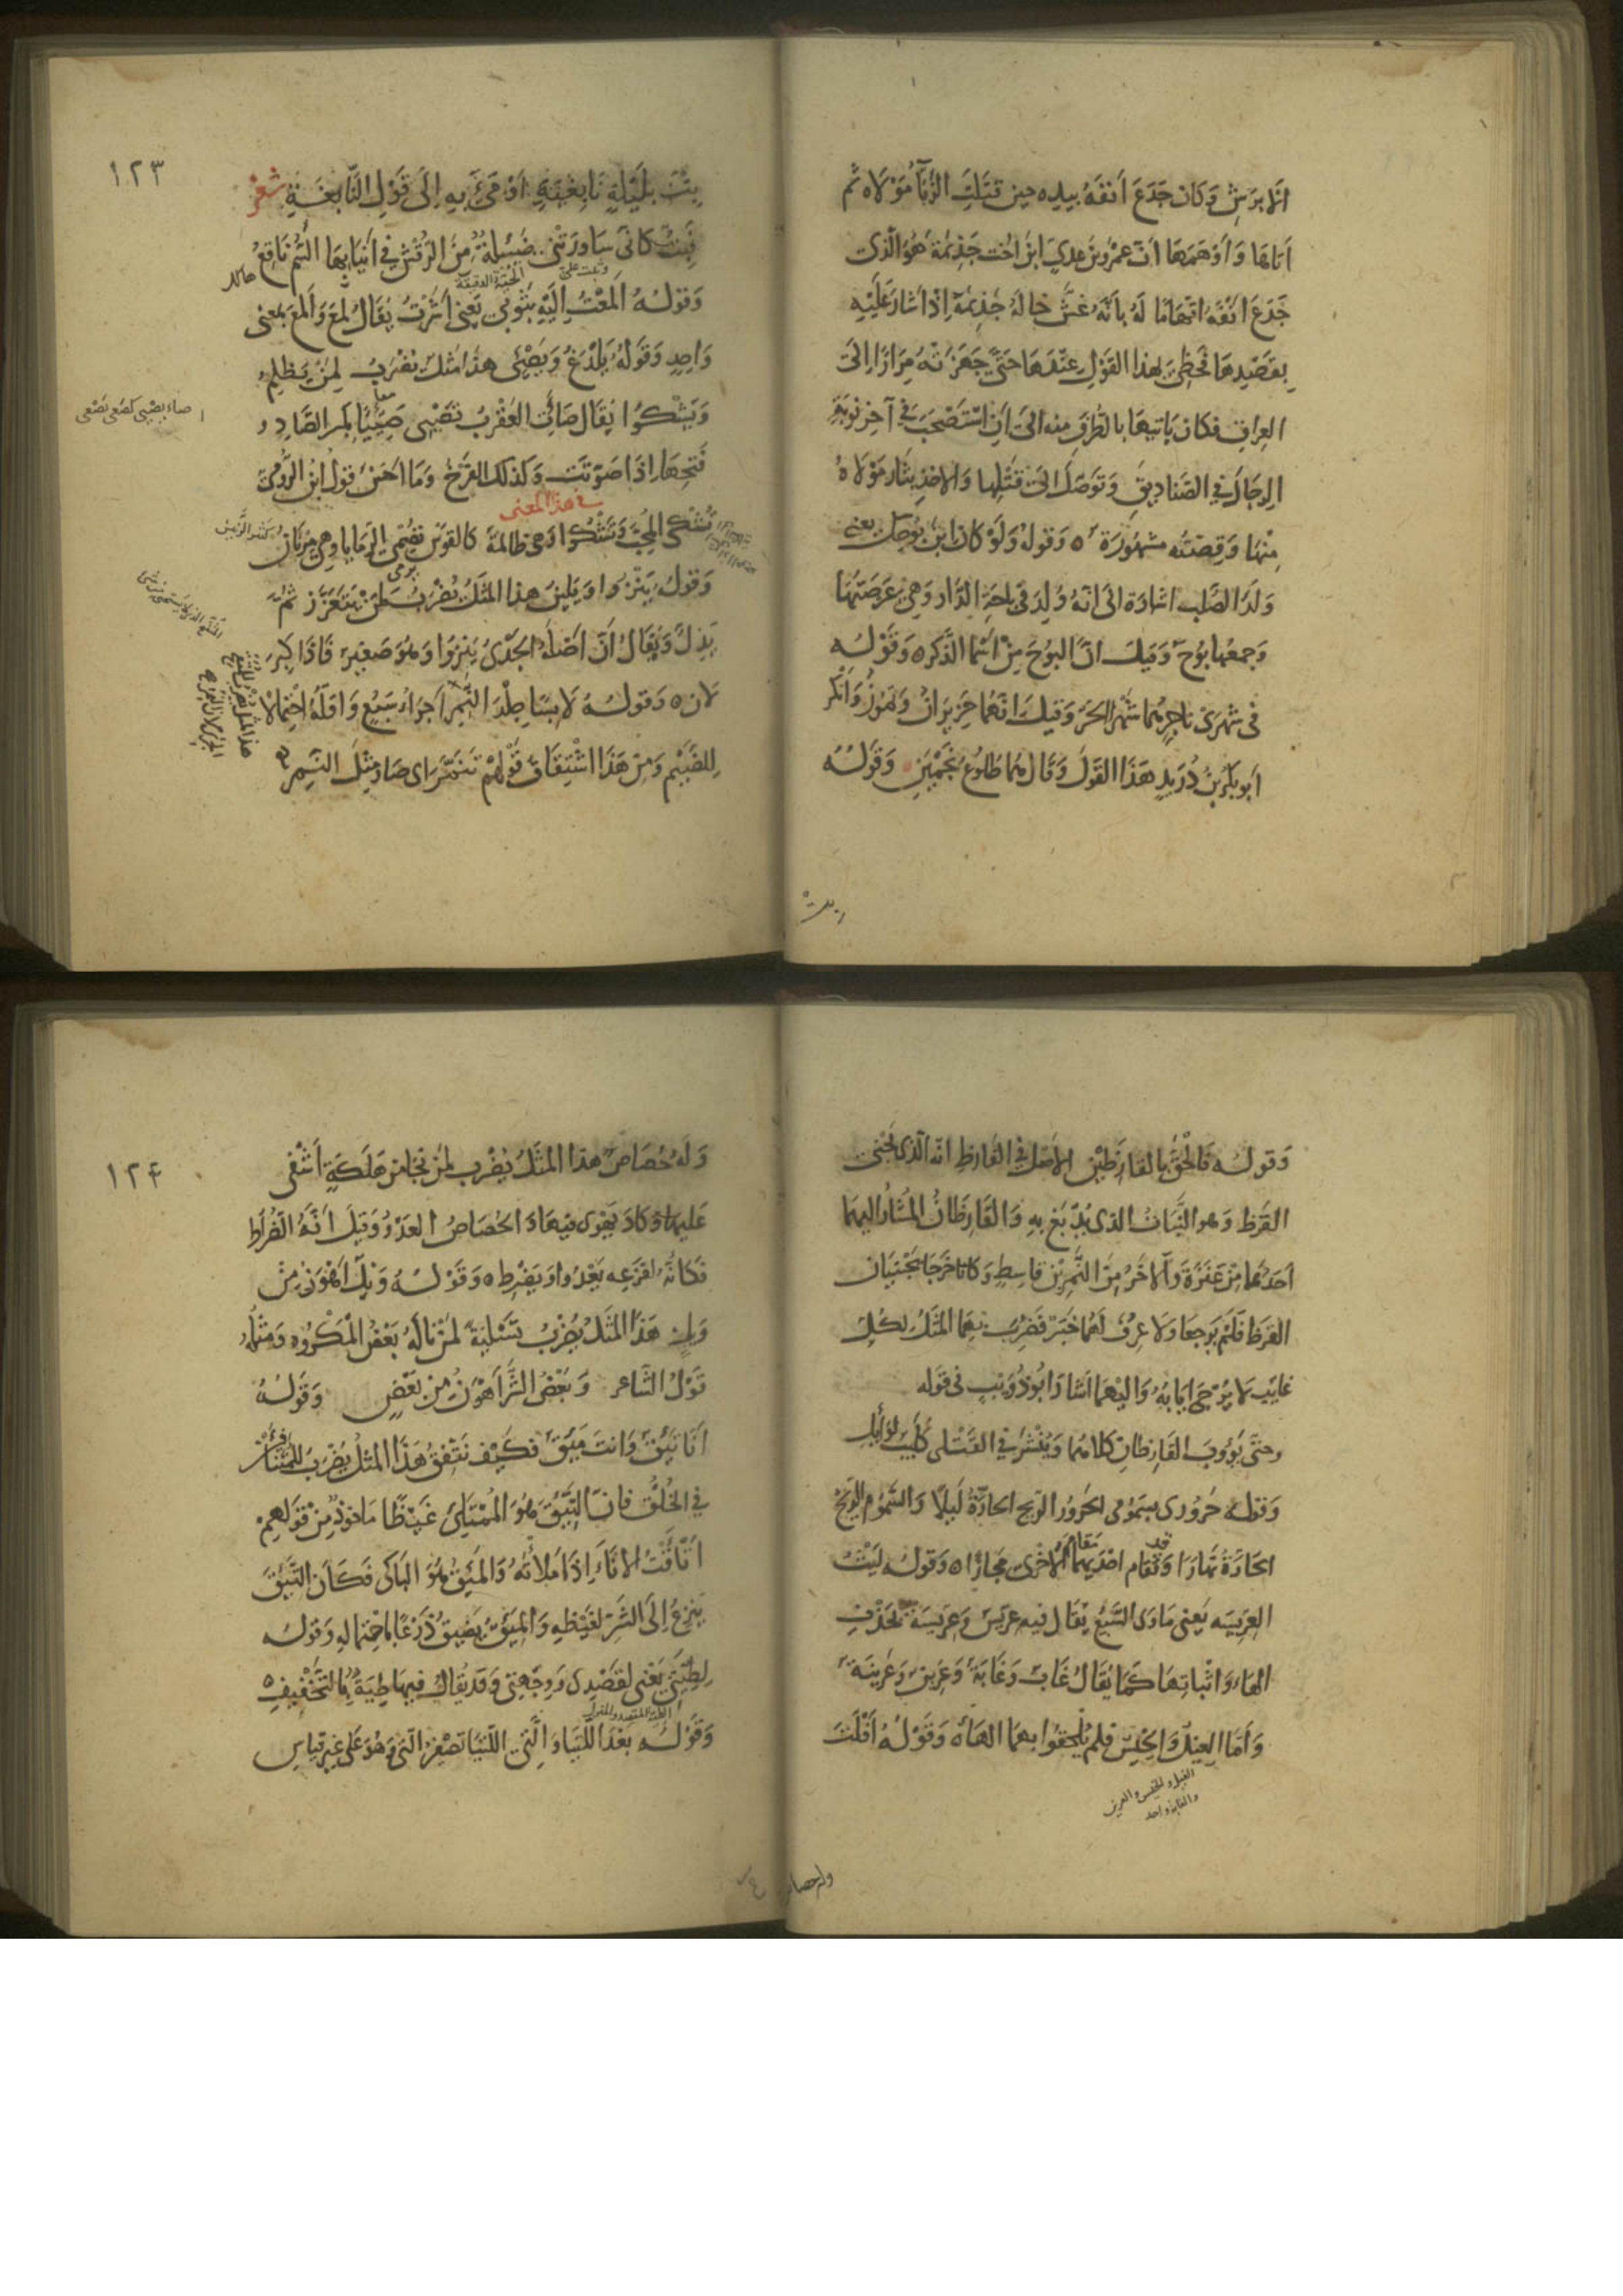 الابرش وكان جدع أنفه بيده حين قتلت الزبّا مولاه ثم
أتاها وأوهمها أن عمرو بن عدي ابن اخت جذيمة هو الذي
جدع انفه اتهاما له بأنه غش خاله جذيمة اذ اشار عليه
بقصدها فحظي بهذا القول عندها حتى جهزته مرارا الى
العراق فكان ياتيها بالطرف منه الى ان استصحب في آخر نوبة
الرجال في الصناديق وتوصل الى قتلها والاخذ بثار مولاه
منها وقصته مشهورة ه وقوله ولو كان ابن بوحك يعني
ولد الصلب اشارة الى انه ولد في باحة الدار وهي عرصتها
وجمعها بوح وقيل ان البوح من اسما الذكر ه وقوله
في شهري ناجر هما شهرا الحر وقيل انهما حزيران وتموز وانكر
ابو بكر بن دريد هذا القول وقال هما طلوع نجمين وقوله
بت
١٢٣
بت بليلة نابغية اومئ به الى قول النابغة شعر
فبت كأني ساورتني ضئيلة من الرقش في أنيابها السم ناقع
وثبت علي
الحية الدقيقة
وقوله المعت اليه بثوبي يعني اشرت يقال لمع والمع بمعنى
واحد وقوله يلدغ ويصئي هذا مثل يضرب لمن يظلم
ويشكوا يقال صأى العقرب تصيء صئيا بكسر الصاد و
معا
صاء يصئي كصعى يصعى
فتحها اذا صوتت وكذلك الفرخ وما احسن قول ابن الرومي
في هذا المعنى
تشكي المحب وتشكوا وهي ظالمة كالقوس تصمي الرمايا وهي مرنان
وقوله ينزوا ويلين هذا المثل يضرب لمن يتعزز ثم
يذل ويقال أن أصله الجدي ينزوا وهو صغير فاذا كبر
لان ه وقوله لابسا جلد النمر اجراء سبع واقله احتمالا
للضيم ومن هذا اشتقاق قولهم تنمر اي صار مثل النمر
وقوله فالحق بالقارظين الاصل في القارظ انه الذي يجني
القرظ وهو النبات الذي يدبغ به والقارظان المشار اليهما
احدهما من عنزة والآخر من النمر بن قاسط وكانا خرجا يجتنيان
القرظ فلم يرجعا ولا عرف لهما خبر فضرب بهما المثل لكل
غايب لا يرجى ايابه واليهما اشار ابو ذؤيب في قوله
وحتى يؤوب القارظان كلاهما وينشر في القتلى كليب لوايل
وقوله حروري بسمومي الحرور الريح الحارة ليلا والسموم الريح
الحارة نهارا وقد تقام احديهما مقام الاخرى مجازا ه وقوله ليث
العريسه يعني ماوى السبع يقال فيه عريس وعريسة بحذف
الهاء واثباتها كما يقال غاب وغابة وعرين وعرينة
واما الغيل والخيس فلم يلحقوا بهما الهاء وقوله افلت
الغيل والخيس والعرين
والغابة واحد
وله حصاص
١٢٤
وله حصاص هذا المثل يضرب لمن نجا من هلكة اشفى
عليها وكاد يهوى فيها والحصاص العدو وقيل انه الضراط
فكانه لفزعه يعدوا ويضرط ه وقوله ويل اهون من
ويلين هذا المثل يضرب تسلية لمن ناله بعض المكروه ومثله
قول الشاعر وبعض الشر اهون من بعض وقوله
انا تئق وانت مئق فكيف نتفق هذا المثل يضرب للمتنافرين
في الخلق فان التئق هو الممتلئ غيظا ماخوذ من قولهم
اتأقت الاناء اذا ملأته والمئق هو الباكي فكأن التئق
ينزع الى الشر لغيظه والمئق يضيق ذرعا باحتماله وقوله
لطيتي يعني لقصدي ووجهتي وقد يقال فيها طية بالتخفيف ه
الطية المقصد والمنزل
وقوله بعد اللتيا والتي اللتيا تصغير التي وهو على غير قياس